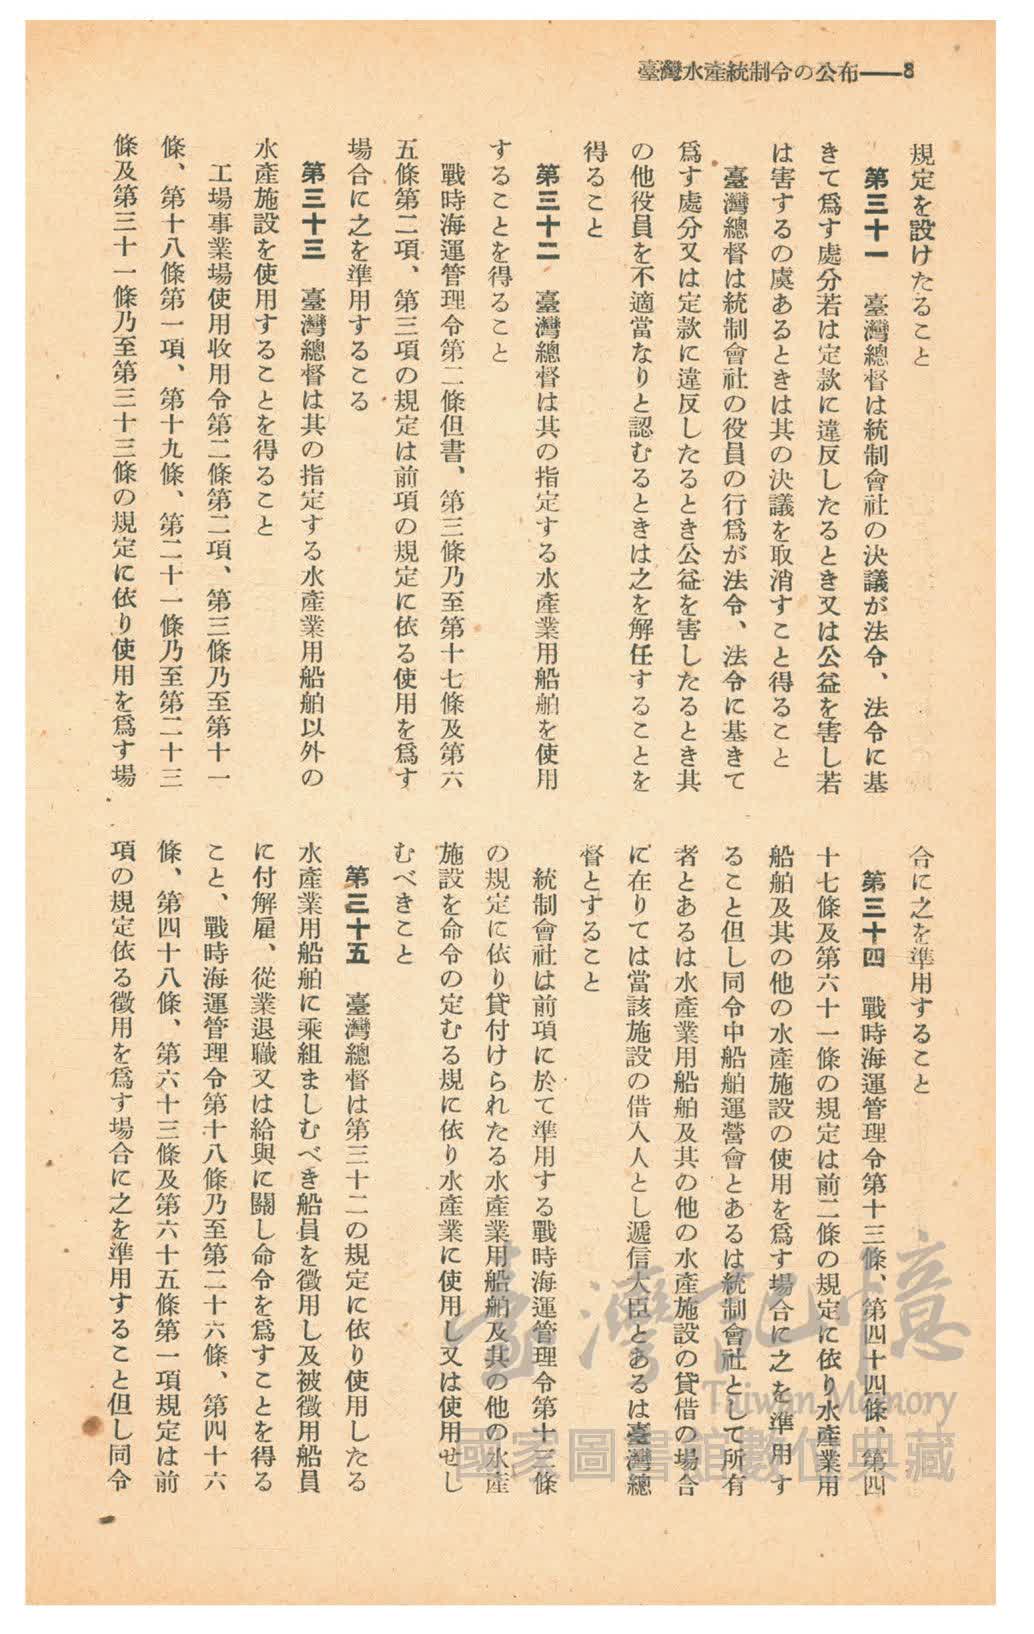 臺灣水產統制令の公布——8
規定を設けたること
第三十一　臺灣總督は統制會社の決議が法令、法令に基
きて爲す處分若は定款に違反したるとき又は公益を害し若
は害するの虞あるときは其の決議を取消すこと得ること
臺灣總督は統制會社の役員の行爲が法令、法令に基きて
爲す處分又は定款に違反したるとき公益を害したるとき其
の他役員を不適當なりと認むるときは之を解任することを
得ること
第三十二　臺灣總督は其の指定する水產業用船舶を使用
することを得ること
戰時海運管理令第二條但書、第三條乃至第十七條及第六
五條第二項、第三項の規定は前項の規定に依る使用を爲す
場合に之を準用するこる
第三十三　臺灣總督は其の指定する水產業用船舶以外の
水產施設を使用することを得ること
工場事業場使用收用令第二條第二項、第三條乃至第十一
條、第十八條第一項、第十九條、第二十一條乃至第二十三
條及第三十一條乃至第三十三條の規定に依り使用を爲す場
合に之を準用すること
第三十四　戰時海運管理令第十三條、第四十四條、第四
十七條及第六十一條の規定は前二條の規定に依り水產業用
船舶及其の他の水產施設の使用を爲す場合に之を準用す
ること但し同令中船舶運營會とあるは統制會社として所有
者とあるは水產業用船舶及其の他の水產施設の貸借の場合
に在りては當該施設の借入人とし遞信大臣とあるは臺灣總
督とすること
統制會社は前項に於て準用する戰時海運管理令第十三條
の規定に依り貸付けられたる水產業用船舶及其の他の水產
施設を命令の定むる規に依り水產業に使用し又は使用せし
むべきこと
第三十五　臺灣總督は第三十二の規定に依り使用したる
水產業用船舶に乘組ましむべき船員を徵用し及被徵用船員
に付解雇、從業退職又は給與に關し命令を爲すことを得る
こと、戰時海運管理令第十八條乃至第二十六條、第四十六
條、第四十八條、第六十三條及第六十五條第一項規定は前
項の規定依る徵用を爲す場合に之を準用すること但し同令
臺灣記憶
Taiwan Memory
國家圖書館數位典藏